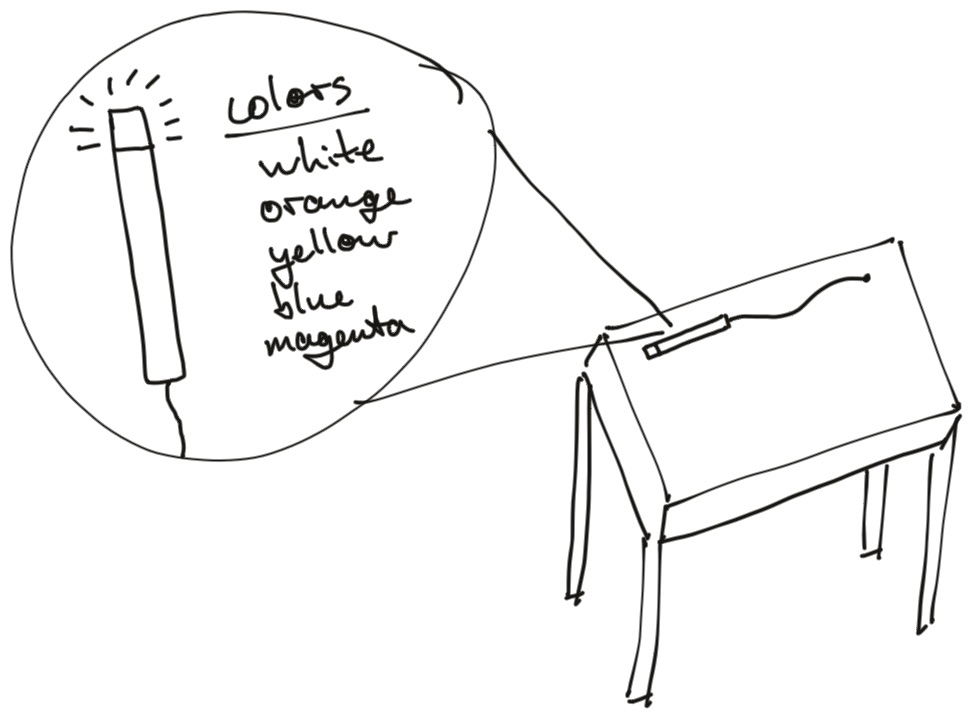 colors
white
orange
yellow
blue
magenta